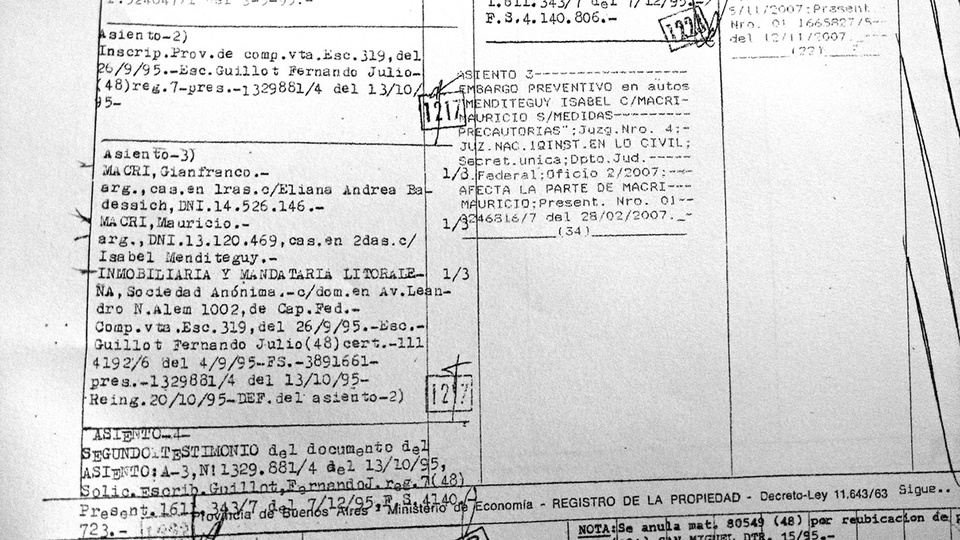 Asiento-2)
Inscrip.Prov.de comp.vta.Esc.319,del
26/9/95.-Esc.Guillot Fernando Julio-
(48)reg.7-pres.-1329881/4 del 13/10/
95-
1217
Asiento-3)
MACRI,Gianfranco.-
arg.,cas.en 1ras.c/Eliana Andrea Ba-
dessich,DNI.14.526.146.-
1/3
MACRI,Mauricio.-
arg.,DNI.13.120.469,cas.en 2das.c/
Isabel Menditeguy.-
1/3
INMOBILIARIA Y MANDATARIA LITORALE-
ÑA,Sociedad Anónima.-c/dom.en Av.Lean-
dro N.Alem 1002,de Cap.Fed.-
1/3
Comp.vta.Esc.319,del 26/9/95.-Esc.-
Guillot Fernando Julio(48)cert.-111
4192/6 del 4/9/95-FS.-3891661-
pres.-1329881/4 del 13/10/95-
Reing.20/10/95-DEF.del asiento-2)
1217
ASIENTO-4-
SEGUNDO:TESTIMONIO del documento del
ASIENTO:A-3,Nº1329.881/4 del 13/10/95,
Solic.Escrib.Guillot,FernandoJ.reg.7(48)
Present.1611.343/7 del 7/12/95.F.S.4140-
723.-
1.611.343/7 del 7/12/95.-
F.S.4.140.806.-
ASIENTO 3
EMBARGO PREVENTIVO en autos
"MENDITEGUY ISABEL C/MACRI-
MAURICIO S/MEDIDAS
PRECAUTORIAS";Juzg.Nro. 4;-
JUZ.NAC.1ºINST.EN LO CIVIL;
Secret.unica;Dpto.Jud.
C.Federal;Oficio 2/2007:---
AFECTA LA PARTE DE MACRI---
MAURICIO;Present. Nro. 01--
3246816/7 del 28/02/2007._-
(34)
5/11/2007;Present.
Nro. 01 1665827/5--
del 12/11/2007.
Provincia de Buenos Aires - Ministerio de Economía - REGISTRO DE LA PROPIEDAD - Decreto-Ley 11.643/63 Sigue..
NOTA:Se anula mat. 80549 (48) por reubicacion de
SAN MIGUEL DTR. 15/95.-